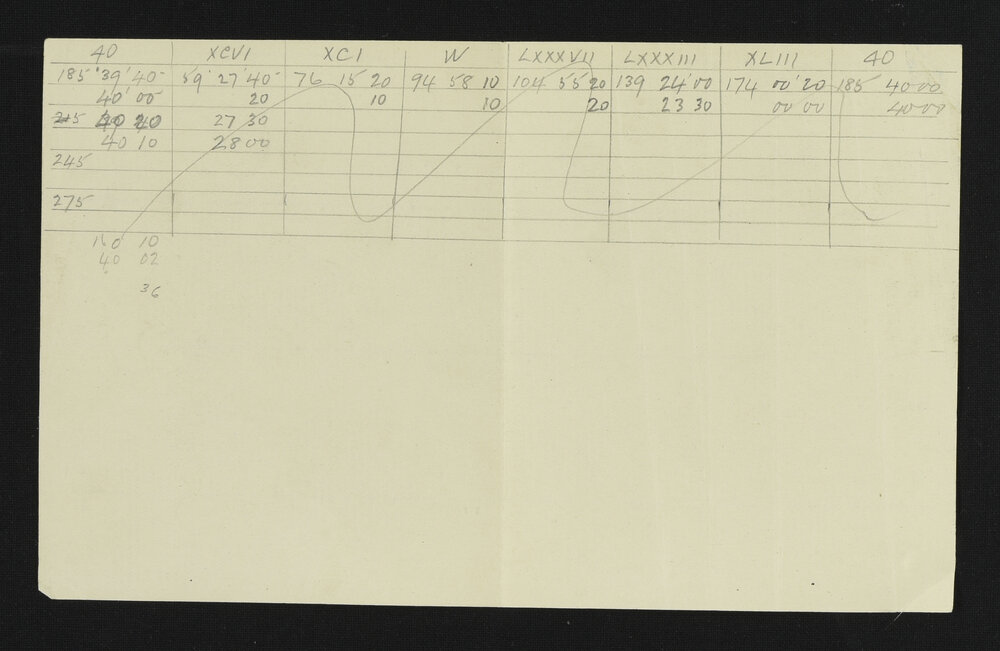 40 XCVI XCI W LXXXVII LXXXIII XLIII 40
185° 39' 40" 59° 27' 40" 76 15 20 94 58 10 104 55 20 139 24' 00 174 00' 20 185 40 00
40' 00 20 10 10 20 23 30 00 00 40 00
215 40 20 27 30
40 10 28 00
245
275
10
40 02
36